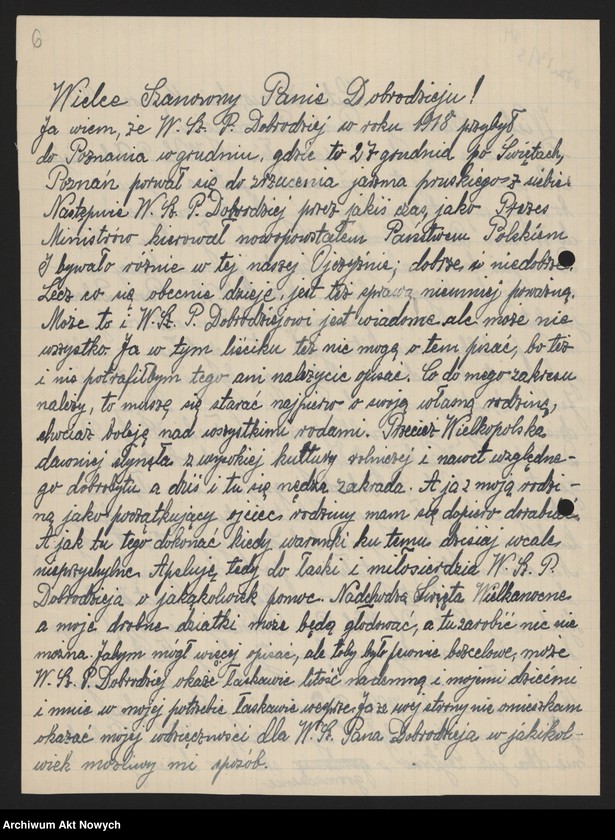 6
Wielce Szanowny Panie Dobrodzieju!
Ja wiem, że W. Sz. P. Dobrodziej w roku 1918 przybył
do Poznania w grudniu, gdzie to 27 grudnia po Świętach,
Poznań porwał się do zrzucenia jarzma pruskiego z siebie.
Następnie W. Sz. P. Dobrodziej przez jakiś czas, jako Prezes
Ministrów kierował nowopowstałem Państwem Polskiem
I bywało różnie w tej naszej Ojczyźnie; dobrze, i niedobrze.
Lecz co się obecnie dzieje, jest też sprawą niemniej poważną.
Może to i W. Sz. P. Dobrodziejowi jest wiadome ale może nie
wszystko. Ja w tym liściku też nie mogę o tem pisać, bo też
i nie potrafiłbym tego ani należycie opisać. Co do mego zakresu
należy, to muszę się starać najpierw o swoją własną rodzinę,
chociaż boleję nad wszystkimi rodami. Przecież Wielkopolska
dawniej słynęła z wysokiej kultury rolniczej i nawet względne-
go dobrobytu a dziś i tu się nędza zakrada. A ja z moją rodzi-
ną jako początkujący ojciec rodziny mam się dopiero dorabiać.
A jak tu tego dokonać kiedy warunki ku temu dzisiaj wcale
nieprzychylne. Apeluję tedy do łaski i miłosierdzia W. Sz. P.
Dobrodzieja o jakąkolwiek pomoc. Nadchodzą Święta Wielkanocne
a moje drobne dziatki może będą głodować, a tu zarobić nic nie
można. Jabym mógł więcej opisać, ale toby było pewnie bezcelowe, może
W. Sz. P. Dobrodziej okaże łaskawie litość nademną i mojemi dziećmi
i mnie w mojej potrzebie łaskawie wesprze. Ja ze swej strony nie omieszkam
okazać mojej wdzięczności dla W. Sz. Pana Dobrodzieja w jakikol-
wiek możliwy mi sposób.
Archiwum Akt Nowych